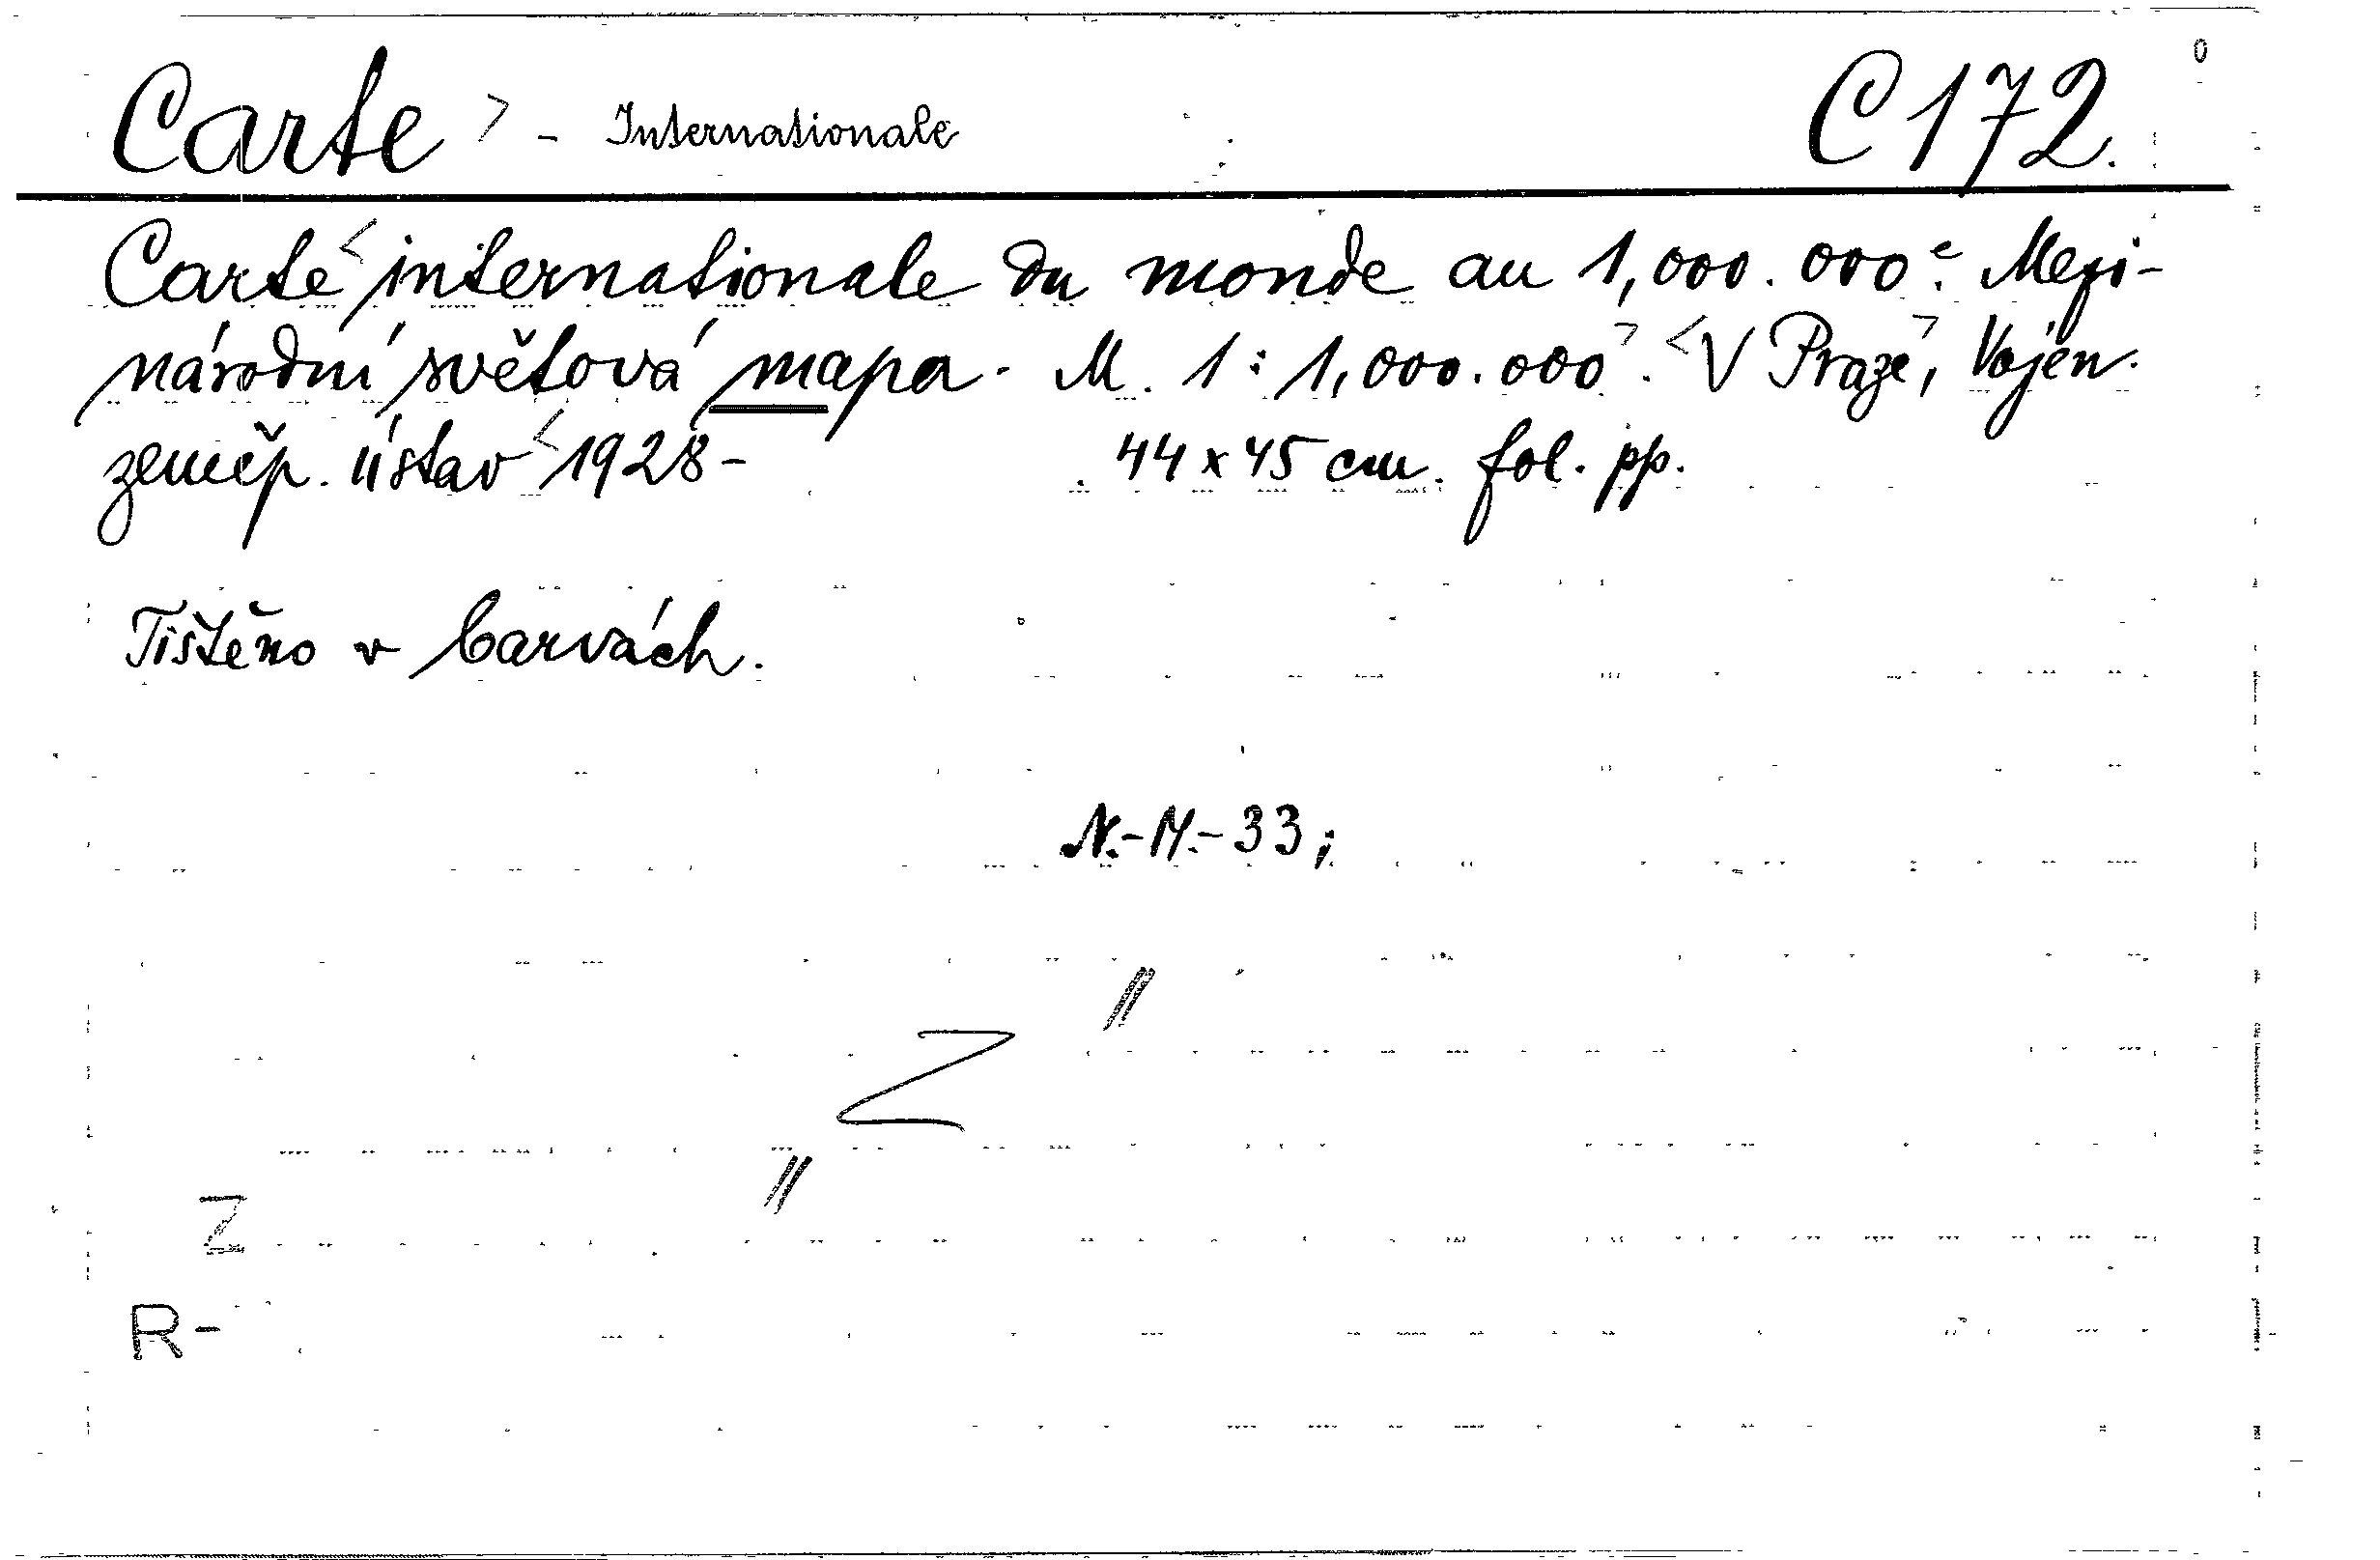 Carte > - Internationale C 172.
Carte < internationale du monde au 1,000.000e. Mezi-
národní světová mapa. M. 1:1,000.000 > . < V Praze >, Vojen.
zeměp. ústav < 1928- 44 x 45 cm. fol. pp.
Tištěno v barvách.
N.-M.-33;
//
Z
//
Z
R-